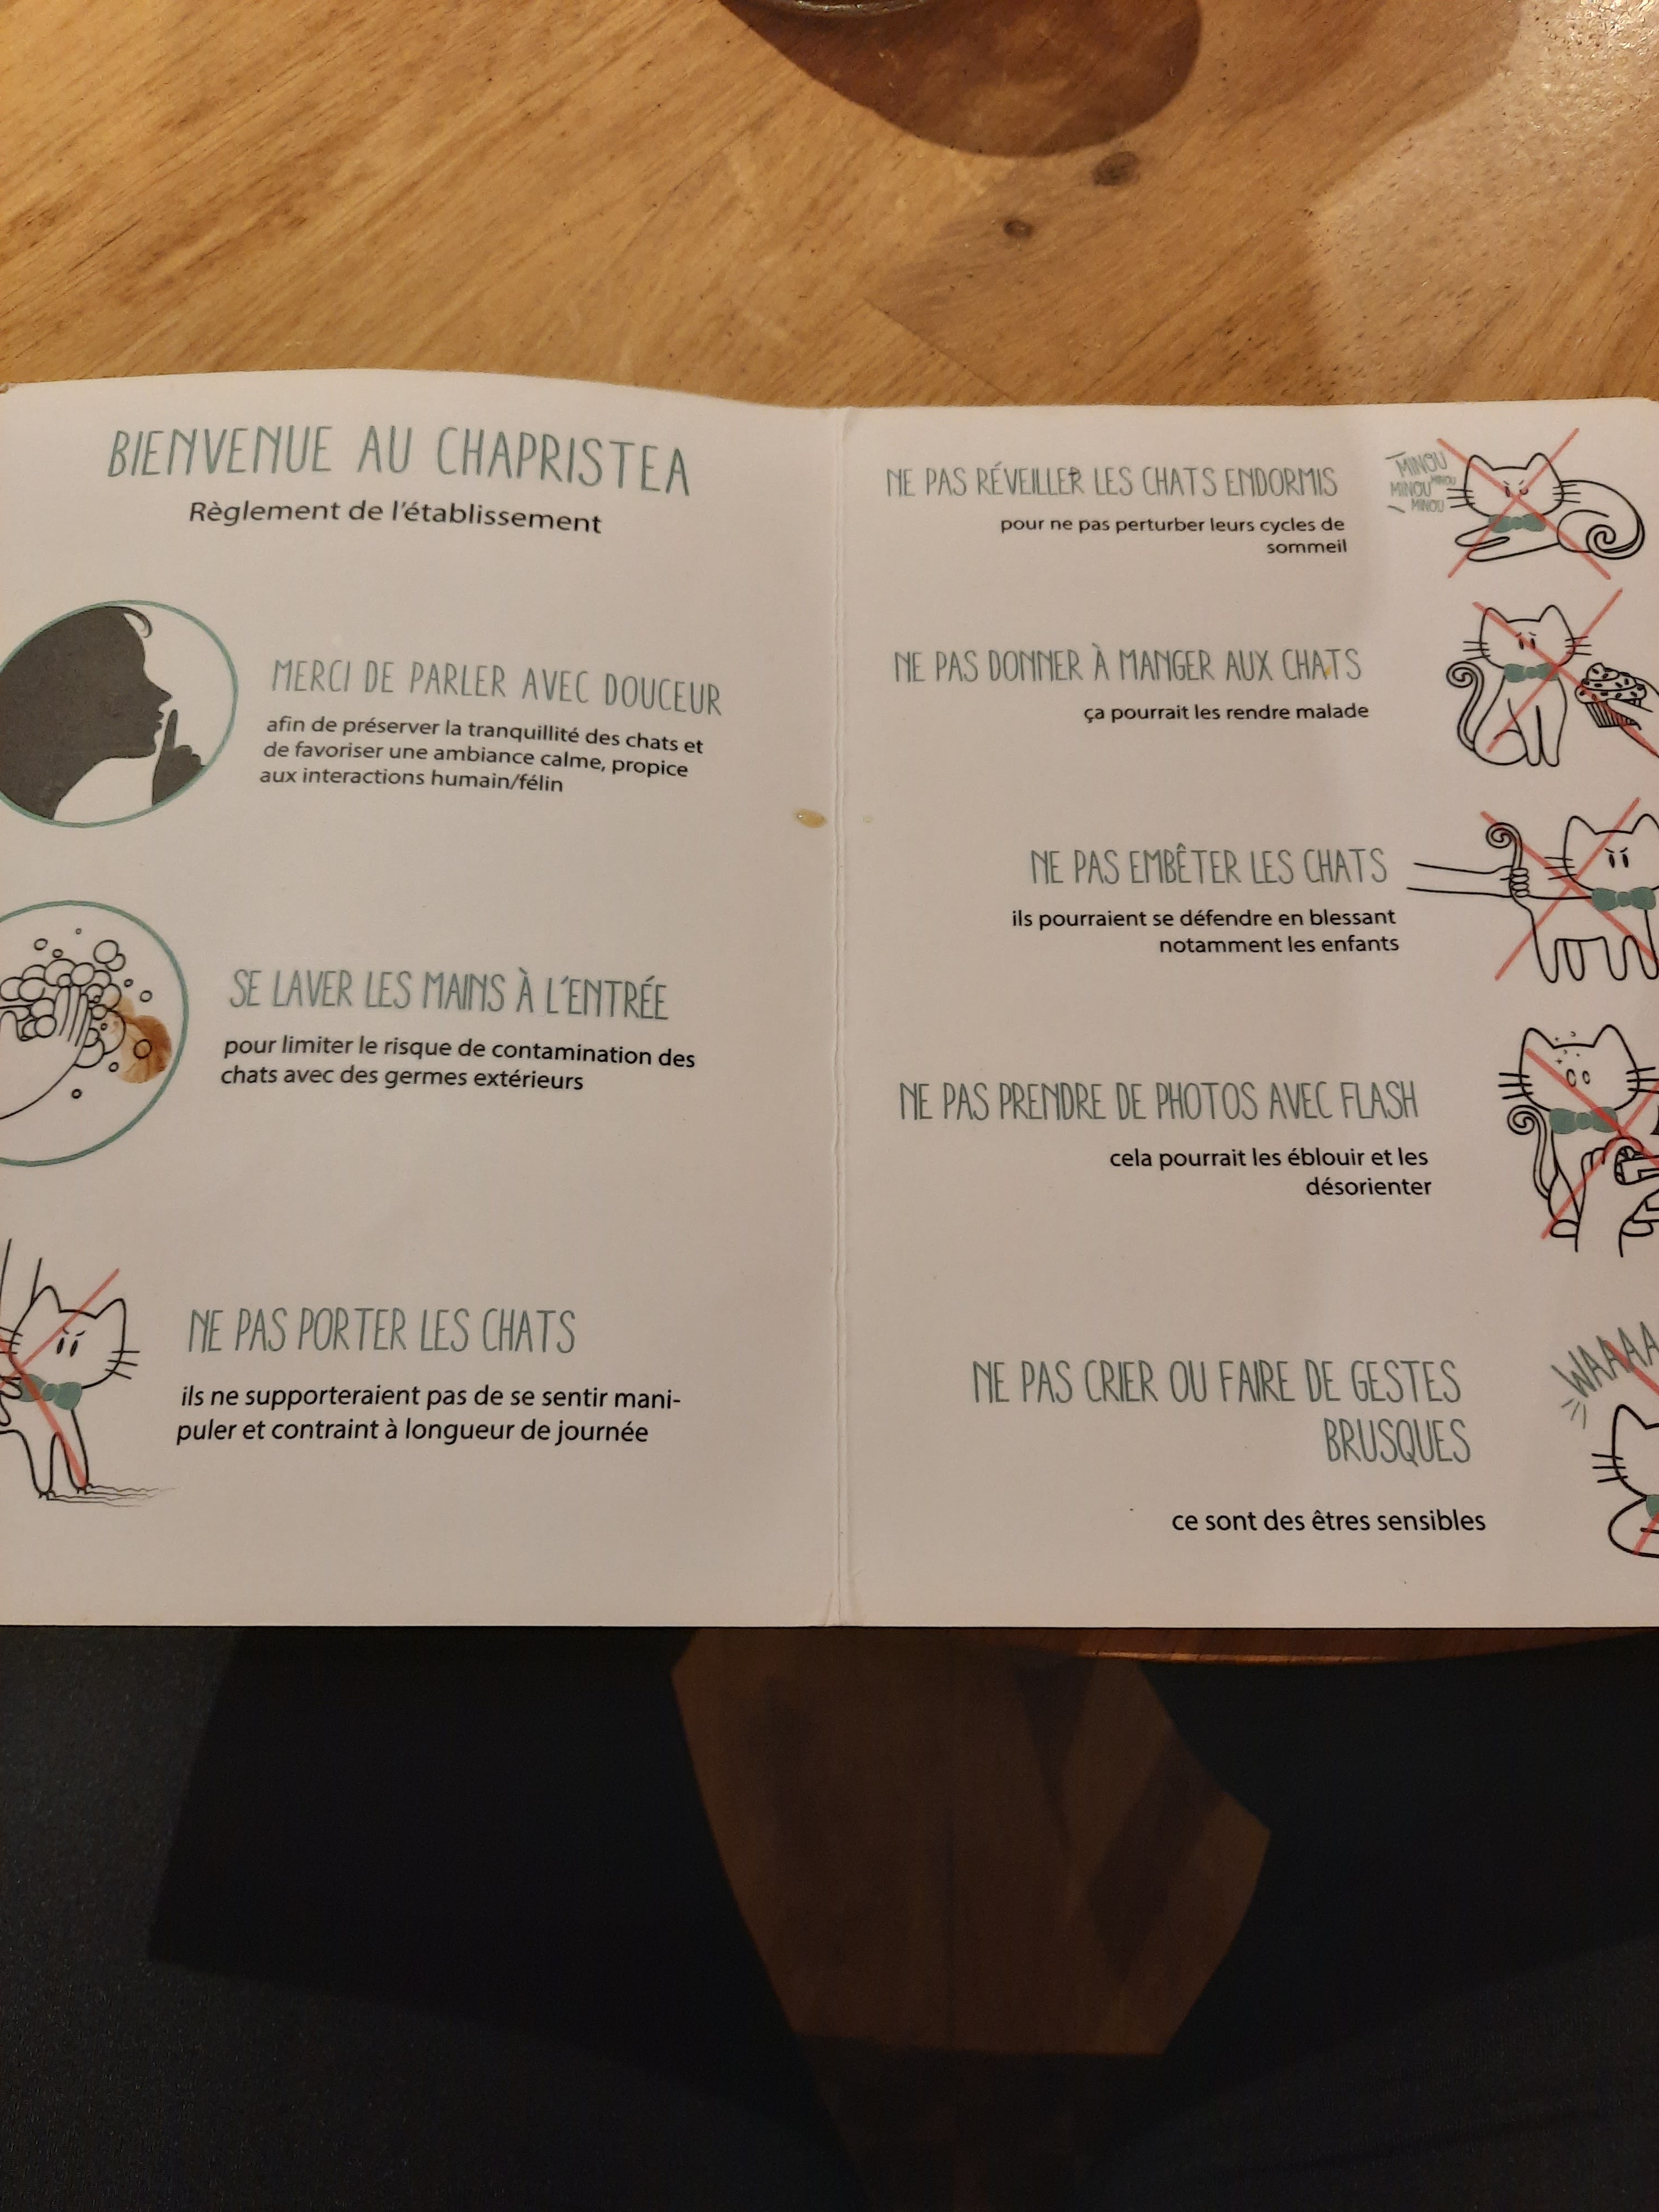 BIENVENUE AU CHAPRISTEA
Règlement de l'établissement
MERCI DE PARLER AVEC DOUCEUR
afin de préserver la tranquillité des chats et
de favoriser une ambiance calme, propice
aux interactions humain/félin
SE LAVER LES MAINS À L'ENTRÉE
pour limiter le risque de contamination des
chats avec des germes extérieurs
NE PAS PORTER LES CHATS
ils ne supporteraient pas de se sentir mani-
puler et contraint à longueur de journée
NE PAS RÉVEILLER LES CHATS ENDORMIS
pour ne pas perturber leurs cycles de
sommeil
MINOU
MINOU MINOU
MINOU
NE PAS DONNER À MANGER AUX CHATS
ça pourrait les rendre malade
NE PAS EMBÊTER LES CHATS
ils pourraient se défendre en blessant
notamment les enfants
NE PAS PRENDRE DE PHOTOS AVEC FLASH
cela pourrait les éblouir et les
désorienter
NE PAS CRIER OU FAIRE DE GESTES
BRUSQUES
ce sont des êtres sensibles
WAAAA